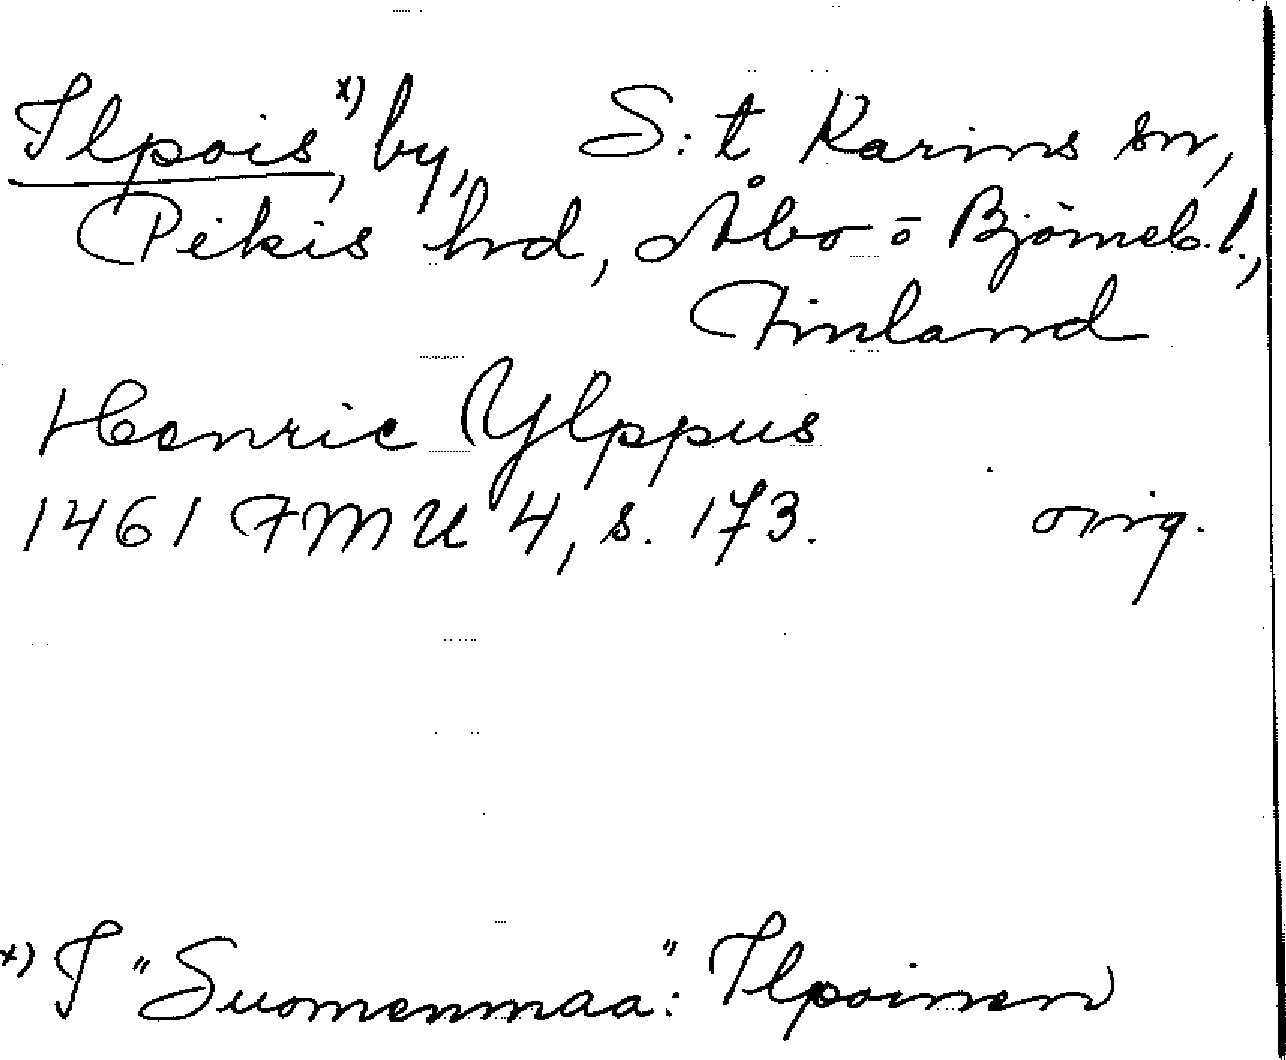 Ilpois,x) by, S:t Karins sn,
Pikis hd, Åbo o Björneb.l.,
Finland
Henric Ylppus
1461 FMU 4, s. 173. orig.
x) I "Suomenmaa": Ilpoinen